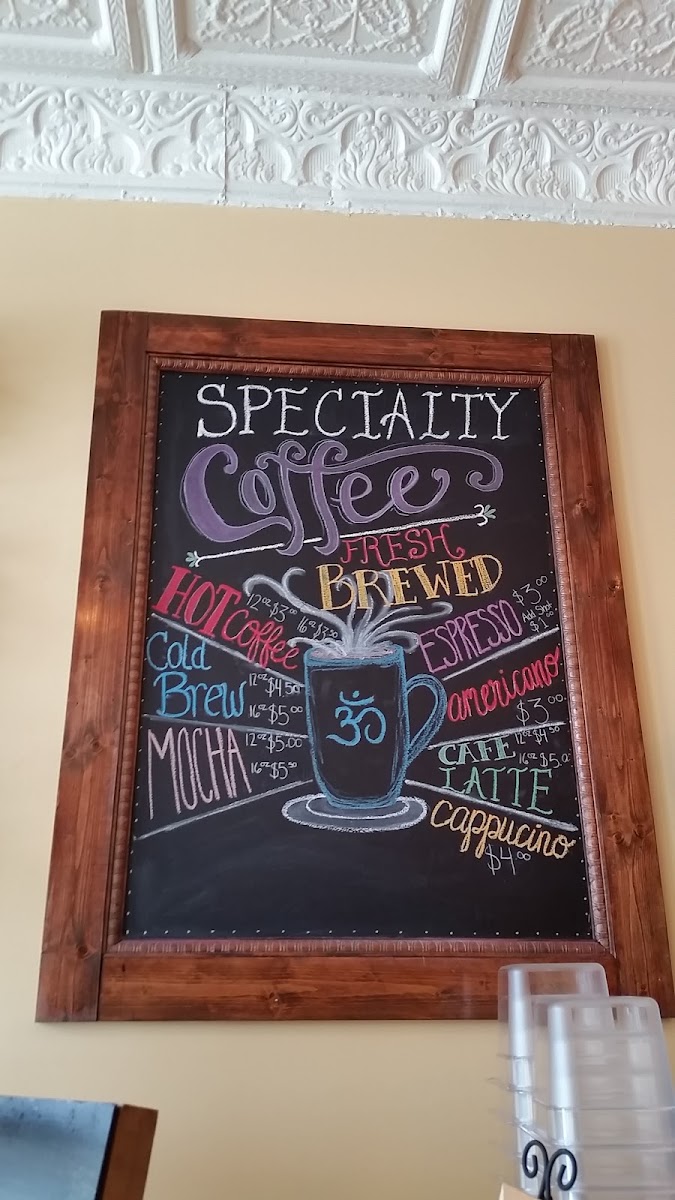 SPECIALTY
Coffee
FRESH
BREWED
HOT Coffee
12oz $3.00
16oz $3.50
Cold Brew
12oz $4.50
16oz $5.00
MOCHA
12oz $5.00
16oz $5.50
ॐ
ESPRESSO
$3.00
Add Shot
$1.00
americano
$3.00
CAFE LATTE
12oz $4.50
16oz $5.0
cappucino
$4.00